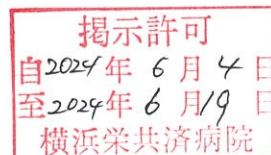 掲示許可
自2024年 6月 4日
至2024年 6月19日
横浜栄共済病院